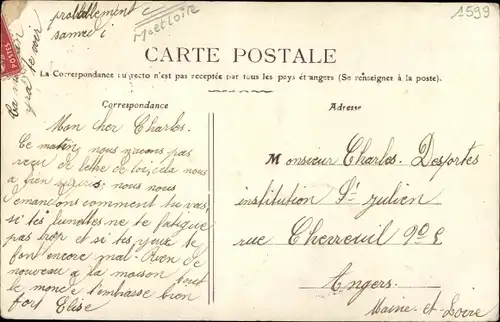 probablement
samedi
M et Loire
1599
POSTES
CARTE POSTALE
La Correspondance au recto n'est pas receptée par tous les pays étrangers (Se renseigner à la poste).
Correspondance
Adresse
Mon cher Charles.
Ce matin, nous navons pas
recu de lettre de toi, cela nous
a bien; nous nous
demandons comment tu vas;
si tes lunettes ne te fatigue
pas trop et si tes yeux te
font encore mal. Rien de
nouveau a la maison tout
le monde t'embrasse bien
fort Elise
Monsieur Charles Desportes
institution St Julien
rue Cherreuil
Angers.
Maine-et-Loire